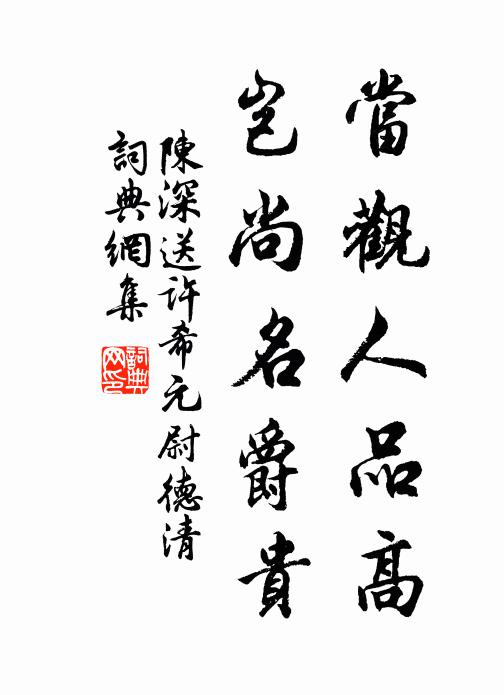 當觀人品高
豈尚名爵貴
陳深送許希元尉德清
詞典網集
詞典網印